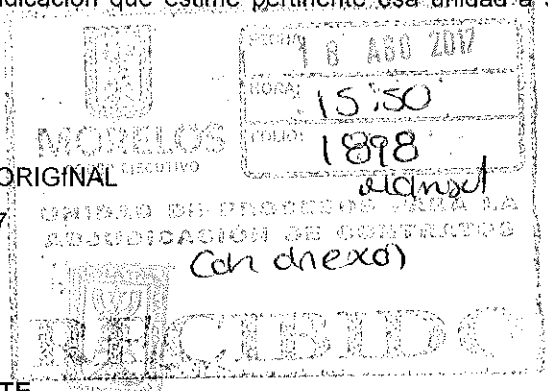 dicación que estime pertinente esa unidad a s
FECHA: 18 AGO 2017
HORA: 15:50
MORELOS
PODER EJECUTIVO
FOLIO: 1898
ORIGINAL
7
UNIDAD DE PROCESOS PARA LA
ADJUDICACIÓN DE CONTRATOS
Con anexo)
RECIBIDO
TE